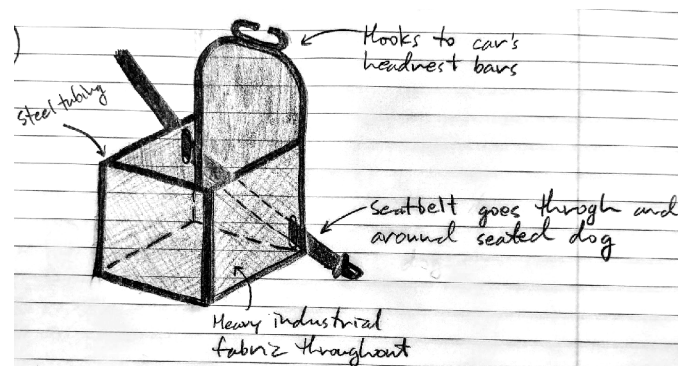 Hooks to car's
headrest bars
steel tubing
seatbelt goes throgh and
around seated dog
Heavy industrial
fabric throughout